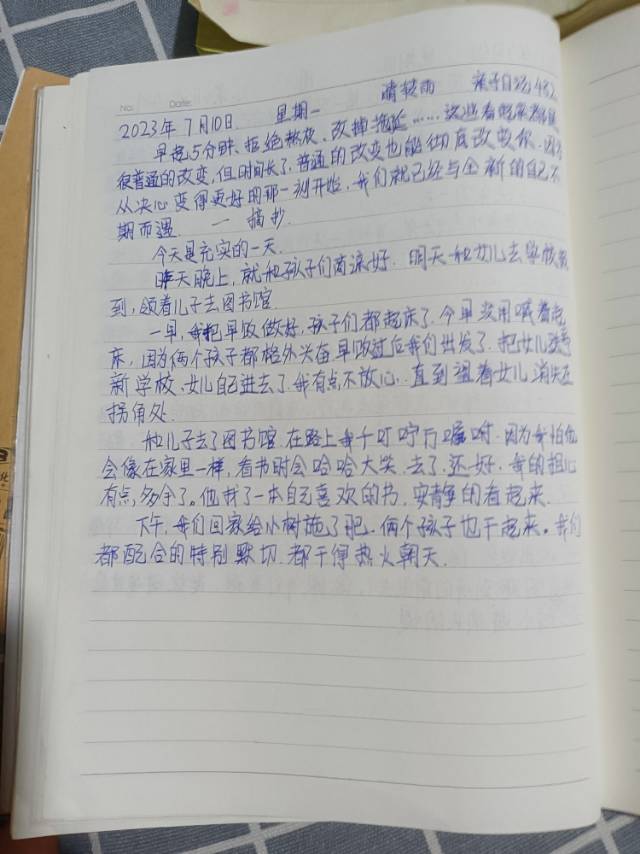 No. Date.
2023年7月10日 星期一 晴转雨 亲子日记482
早起5分钟、拒绝熬夜、改掉拖延……这些看起来都是
很普通的改变,但时间长了,普通的改变也能彻底改变你.因为
从决心变得更好的那一刻开始,我们就已经与全新的自己不
期而遇. 一 摘抄.
今天是充实的一天.
昨天晚上,就和孩子们商谅好.明天和女儿去学校报
到,领着儿子去图书馆.
一早,我把早饭做好,孩子们都起床了.今早没用喊着起
床,因为俩个孩子都格外兴奋.早饭过后我们出发了.把女儿送到
新学校.女儿自己进去了.我有点不放心.直到望着女儿消失在
拐角处.
和儿子去了图书馆.在路上我千叮咛万嘱咐.因为我怕他
会像在家里一样,看书时会哈哈大笑.去了.还好.我的担心
有点多余了.他找了一本自己喜欢的书.安静的看起来.
下午,我们回家给小树施了肥.俩个孩子也干起来。我们
都配合的特别默切.都干得热火朝天.